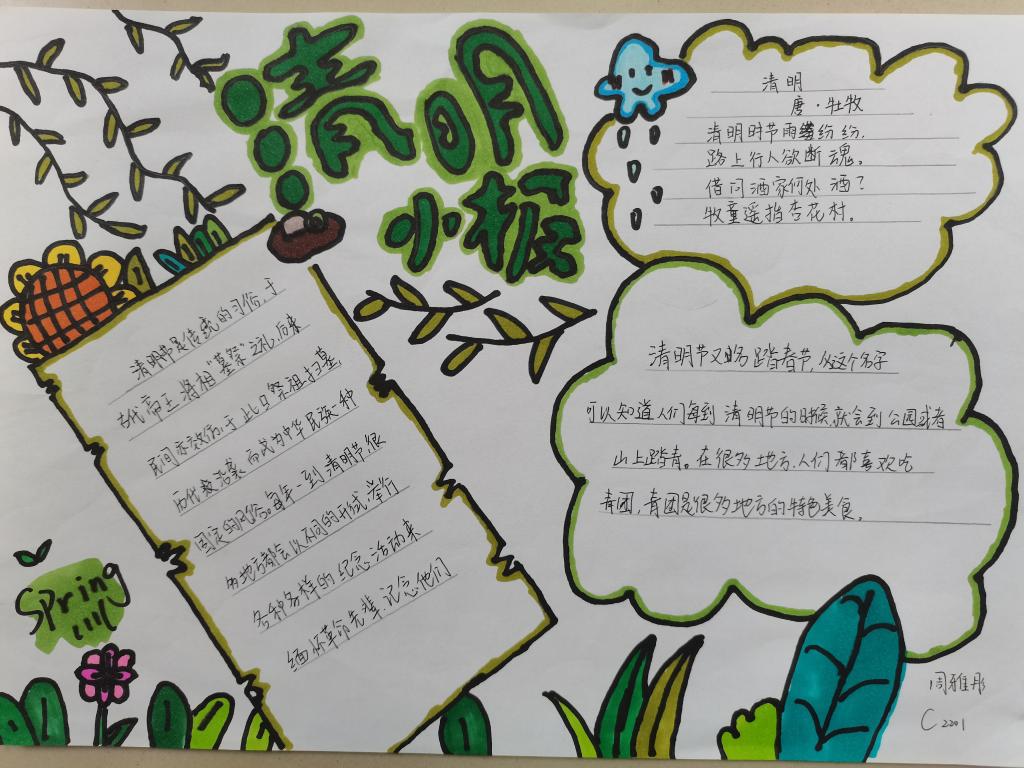 清明
小报
清明
唐·牡牧
清明时节雨纷纷,
路上行人欲断魂。
借问酒家何处酒?
牧童遥指杏花村。
清明节是传统的习俗,于
古代帝王将相“墓祭”之礼,后来
民间亦效仿,于此日祭祖扫墓,
历代沿袭而成为中华民族一种
固定的风俗。每年一到清明节,很
多地方都会以不同的形式举行
各种各样的纪念活动来
缅怀革命先辈,记念他们
清明节又吻踏春节,从这个名字
可以知道人们每到清明节的时候,就会到公园或者
山上踏青。在很多地方,人们都喜欢吃
青团,青团是很多地方的特色美食。
Spring
周雅彤
C2201